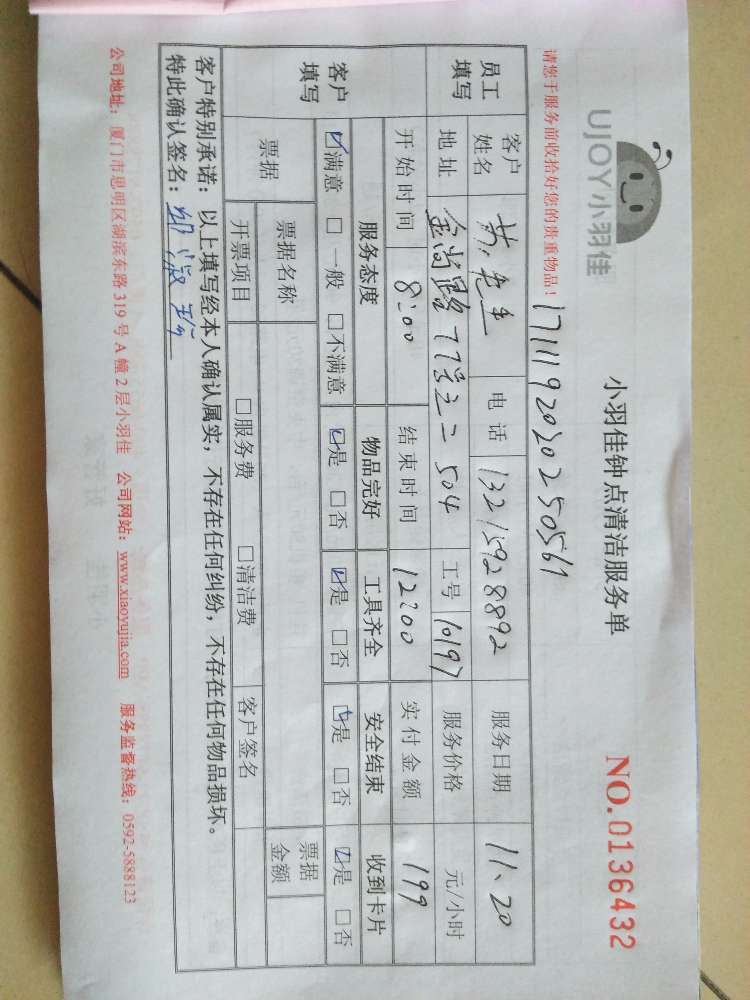 UJOY小羽佳
小羽佳钟点清洁服务单
NO.0136432
请您于服务前收拾好您的贵重物品！
17111920202505 61
员工填写 客户姓名 黄先生 电话 13215928892 服务日期 11.20
地址 金尚路77号之二504 工号 10197 服务价格 元/小时
开始时间 8:00 结束时间 12:00 实付金额 199
客户填写 服务态度 物品完好 工具齐全 安全结束 收到卡片
☑满意 □一般 □不满意 ☑是 □否 ☑是 □否 ☑是 □否 ☑是 □否
票据 票据名称 票据金额
开票项目 □服务费 □清洁费 客户签名
客户特别承诺：以上填写经本人确认属实，不存在任何纠纷，不存在任何物品损坏。
特此确认签名：
公司地址：厦门市思明区湖滨东路319号A幢2层小羽佳 公司网站：www.xiaoyujia.com 服务监督热线：0592-5888123